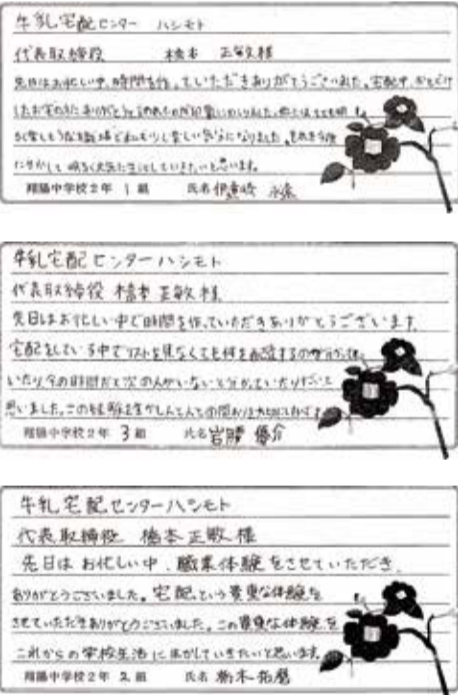 牛乳宅配センター ハシモト
代表取締役 橋本 正敏様
先日はお忙しい中、時間を作っていただきありがとうございました。宅配中、おとどけ
したお宅の方にありがとうと
明る
く楽しそうな職場で私も少し楽しい気分になりました。
にいかして 明るく元気に生活していきたいと思います。
翔陽中学校2年 1組 氏名
牛乳宅配センターハシモト
代表取締役 橋本 正敏 様
先日はお忙しい中で時間を作っていただきありがとうございます。
宅配をしている中でリストを見なくても何を配達するのか分かって
いたり今の時間だと次の人がいないと分かっていたりすごいと
思いました。この経験を生かし
翔陽中学校2年 3組 氏名 岩勝 優介
牛乳宅配センターハシモト
代表取締役 橋本正敏 様
先日は お忙しい中、職業体験をさせていただき、
ありがとうございました。宅配という貴重な体験を
させていただきありがとうございました。この貴重な体験を
これからの学校生活に生かしていきたいと思います。
翔陽中学校2年 2組 氏名 栃木